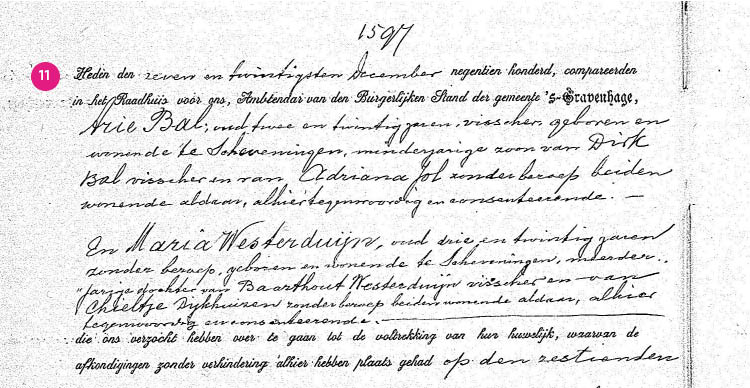 1597
11
Heden den zeven en twintigsten December negentien honderd, compareerden
in het Raadhuis voor ons, Ambtenaar van den Burgerlijken Stand der gemeente 's-Gravenhage,
Arie Bal, oud twee en twintig jaren, visscher, geboren en
wonende te Scheveningen, minderjarige zoon van Dirk
Bal visscher en van Adriana Jol zonder beroep beiden
wonende aldaar, alhier tegenwoordig en consenteerende. —
En Maria Westerduijn, oud drie en twintig jaren
zonder beroep, geboren en wonende te Scheveningen, meerder-
"jarige dochter van Baarthout Westerduijn visscher en van
Chieltje Dijkhuizen zonder beroep beiden wonende aldaar, alhier
tegenwoordig en consenteerende. —
die ons verzocht hebben over te gaan tot de voltrekking van hun huwelijk, waarvan de
afkondigingen zonder verhindering alhier hebben plaats gehad op den zestienden